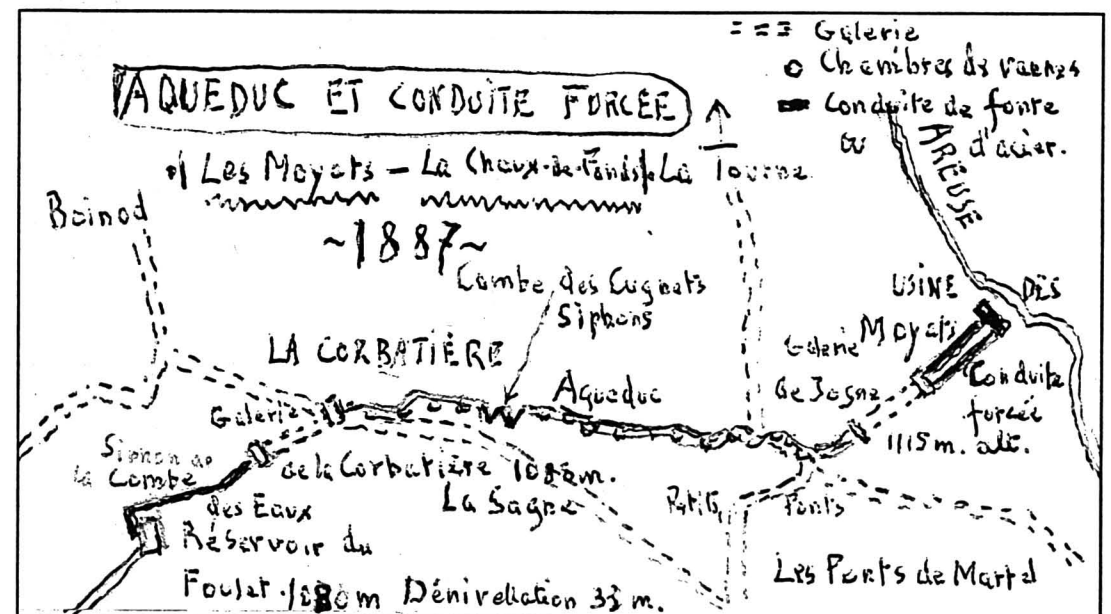 === Galerie
o Chambres de vannes
Conduite de fonte
ou d'acier.
AQUEDUC ET CONDUITE FORCÉE
Les Moyats – La Chaux-de-Fonds
La Tourne
~1887~
Boinod
AREUSE
Combe des Cugnets
Siphons
LA CORBATIÈRE
USINE DES
Moyats
Galerie
de Jogne
Aqueduc
Conduite
forcée
1115 m. alt.
Galerie
de la Corbatière 1085m.
Siphon de
la Combe
des Eaux
La Sagne
Petits Ponts
Réservoir du
Foulet. 1080m Dénivellation 35 m.
Les Ponts de Martel